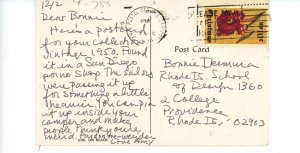 12/2
Dear Bonnie
Here's a postcard
for your Collection
Vintage 1950. Found
it in a San Diego
porno Shop. The Sailors
were passing it up
for something a little
Sleazier. You can pin
it up inside your
camper and make
people think you're
weird.
Love Amy
Post Card
Bonnie Ikemura
Rhode Is. School
of Design 1360
2 College
Providence
Rhode Is., 02903